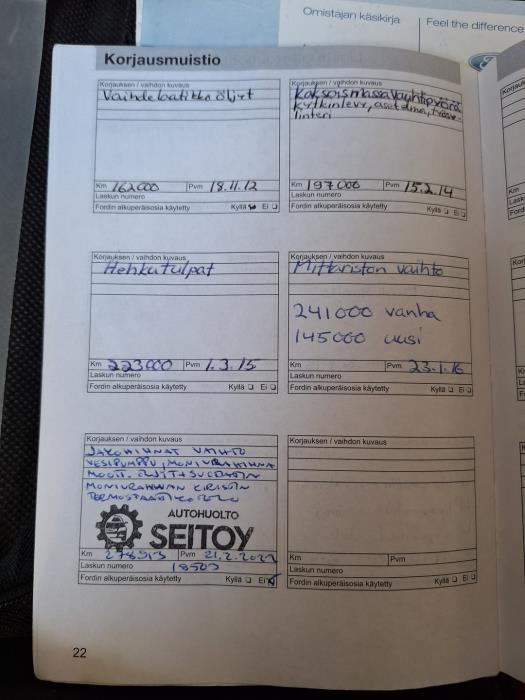 Omistajan käsikirja
Feel the difference
Korjausmuistio
Korjauksen / vaihdon kuvaus
Vaihdelaatikko öljyt
Km 162000 Pvm 18.11.12
Laskun numero
Fordin alkuperäisosia käytetty Kyllä Ei
Korjauksen / vaihdon kuvaus
Kaksoismassavauhtipyörä
kytkinlevy, asetelma, työsy-
linteri
Km 197000 Pvm 15.2.14
Laskun numero
Fordin alkuperäisosia käytetty Kyllä Ei
Korjauksen / vaihdon kuvaus
Hehkutulpat
Km 223000 Pvm 1.3.15
Laskun numero
Fordin alkuperäisosia käytetty Kyllä Ei
Korjauksen / vaihdon kuvaus
Mittariston vaihto
241000 vanha
145000 uusi
Km Pvm 23.1.16
Laskun numero
Fordin alkuperäisosia käytetty Kyllä Ei
Korjauksen / vaihdon kuvaus
JAKOHIHNAT VAIHTO
VESIPUMPPU, MONIURAHIHNA
MONIURAHIHNAN KIRISTIN
AUTOHUOLTO
SEITOY
Km Pvm
Laskun numero 18503
Fordin alkuperäisosia käytetty Kyllä Ei
Korjauksen / vaihdon kuvaus
Km Pvm
Laskun numero
Fordin alkuperäisosia käytetty Kyllä Ei
22